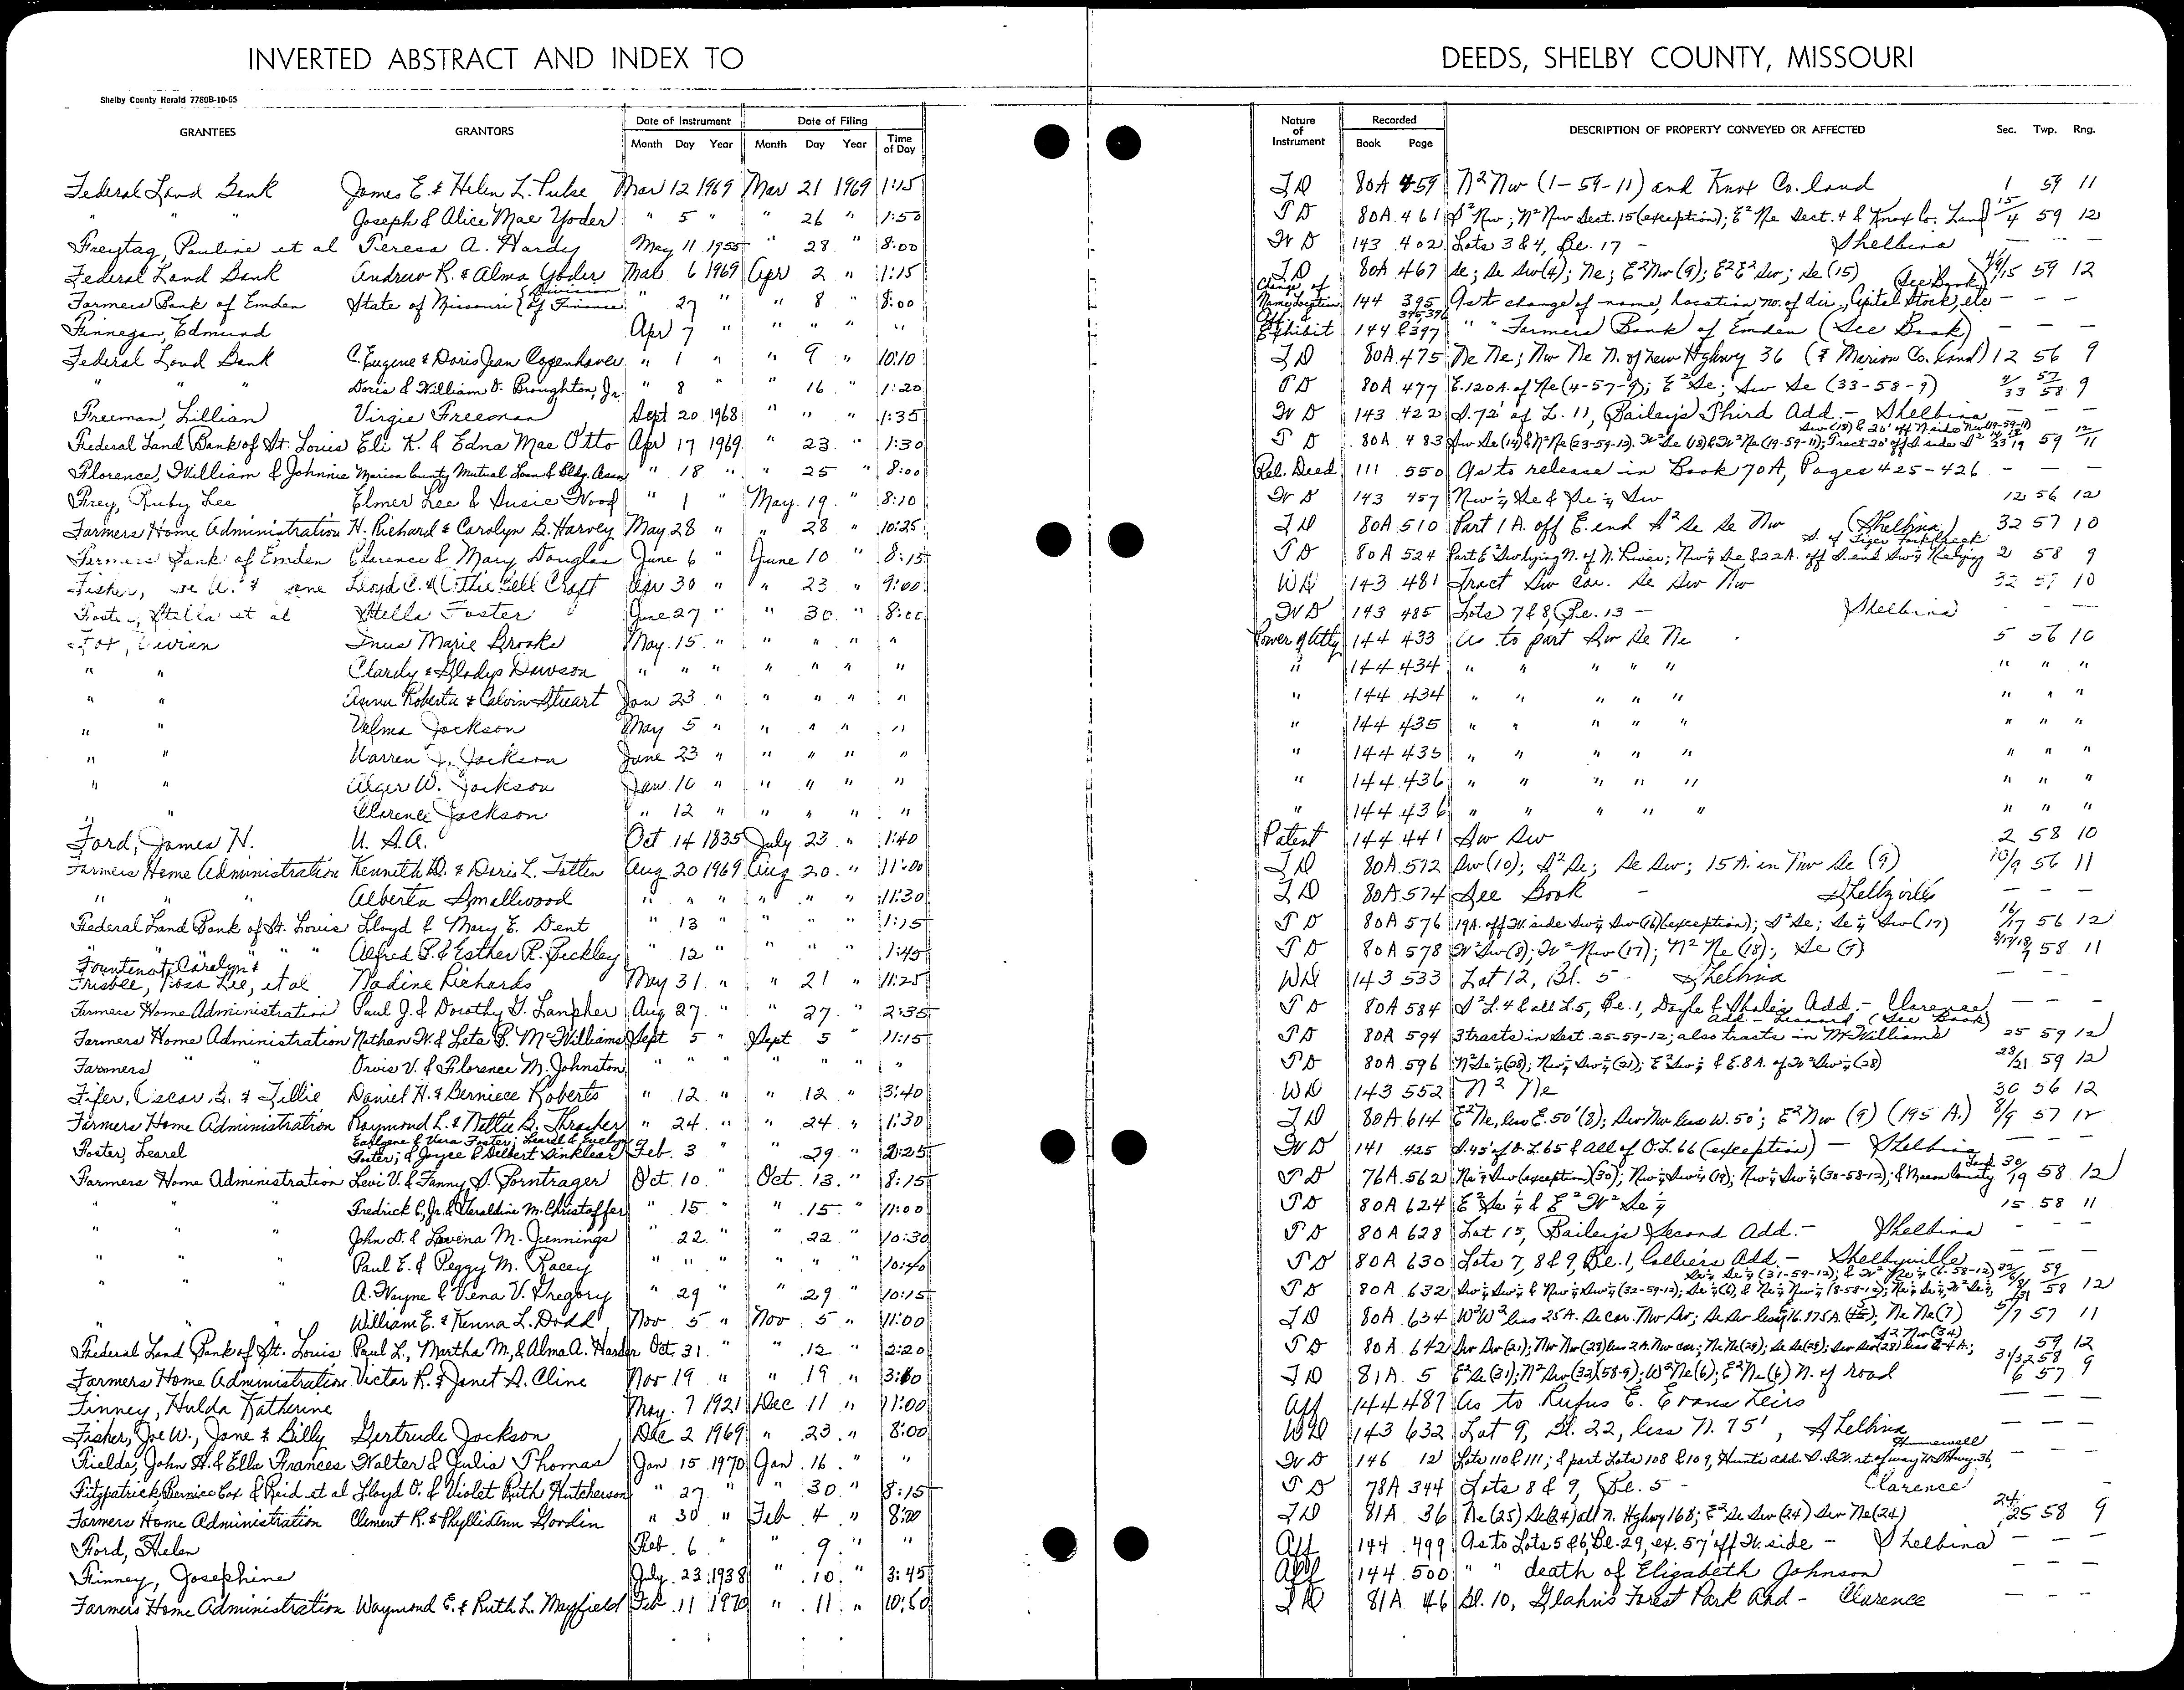 INVERTED ABSTRACT AND INDEX TO DEEDS, SHELBY COUNTY, MISSOURI
Shelby County Herald 7780B-10-65
GRANTEES GRANTORS Date of Instrument Date of Filing Time of Day Nature of Instrument Recorded DESCRIPTION OF PROPERTY CONVEYED OR AFFECTED Sec. Twp. Rng.
Month Day Year Month Day Year Book Page
Federal Land Bank James E. & Helen L. Pulse Mar 12 1969 Mar 21 1969 1:15 T D 80A 459 N2 Nw (1-59-11) and Knox Co. land 1 59 11
" " " Joseph & Alice Mae Yoder " 5 " " 26 " 1:50 T D 80A 461 S2 Nw; N2 Nw Sect. 15 (exception); E2 Ne Sect. 4 & Knox Co. Land 15/4 59 12
Freytag, Pauline et al Teresa A. Hardy May 11 1955 " 28 " 8:00 W D 143 402 Lots 3 & 4, Bl. 17 - Shelbina — — —
Federal Land Bank Andrew R. & Alma Yoder Mar 6 1969 Apr 2 " 1:15 T D 80A 467 Se; Se Sw (4); Ne; E2 Nw (9); E2 E2 Sw; Se (15) 4/9/15 59 12
Farmers Bank of Emden State of Missouri (Division of Finance) " 27 " " 8 " 8:00 Change of Name, Location 144 395 As to change of name, location, no. of dir., Capital Stock, etc (See Book) — — —
Finnegan, Edmund Apr 7 " " " " " Aff. & Exhibit 144 395,396 & 397 " " Farmers Bank of Emden (See Book) — — —
Federal Land Bank C. Eugene & Doris Jean Copenhaver " 1 " " 9 " 10:10 T D 80A 475 Ne Ne; Nw Ne N. of new Hghwy 36 (& Marion Co. land) 12 56 9
" " " Doris & William O. Broughton, Jr. " 8 " " 16 " 1:20 T D 80A 477 E. 120 A. of Ne (4-57-9); E2 Se; Sw Se (33-58-9) 4/33 57/58 9
Freeman, Lillian Virgie Freeman Sept 20 1968 " " " 1:35 W D 143 422 S. 72' of L. 11, Bailey's Third Add. - Shelbina — — —
Federal Land Bank of St. Louis Eli K. & Edna Mae Otto Apr 17 1969 " 23 " 1:30 T D 80A 483 Sw Se (14) & N2 Ne (23-59-12). W2 Se (18) & W2 Ne (19-59-11); Tract 20' off S. side S2 Sw (18) & 20' off N. side Nw (19-59-11) 59 12/11
Florence, William & Johnnie Marion County Mutual Loan & Bldg. Assn " 18 " " 25 " 8:00 Rel. Deed 111 550 As to release in Book 70A, Pages 425-426 — — —
Frey, Ruby Lee Elmer Lee & Susie Wood " 1 " May 19 " 8:10 W D 143 457 Nw¼ Se & Se¼ Sw 12 56 12
Farmers Home Administration H. Richard & Carolyn B. Harvey May 28 " " 28 " 10:25 T D 80A 510 Part 1 A. off E. end S2 Se Se Nw (Shelbina) 32 57 10
Farmers Bank of Emden Clarence & Mary Douglas June 6 " June 10 " 8:15 T D 80A 524 Part E2 Sw lying N. of N. River; Nw¼ Se & 22 A. off S. end Sw¼ Ne lying S. of Tiger Fork Creek 2 58 9
Fisher, Lloyd C. & Craft Apr 30 " " 23 " 9:00 WD 143 481 Tract Sw cor. Se Sw Nw 32 57 10
Foster, Stella et al Stella Foster June 27 " " 30 " 8:00 W D 143 485 Lots 7 & 8, Bl. 13 - Shelbina — —
Fox, Vivian Inus Marie Brooks May 15 " " " " " Power of Atty 144 433 As to part Sw Se Ne 5 56 10
" " Clardy & Gladys Dawson " " " " " " " " 144 434 " " " " " " " "
" " Anna Roberta & Calvin Stuart Jan 23 " " " " " " 144 434 " " " " " " " "
" " Velma Jackson May 5 " " " " " " 144 435 " " " " " " " "
" " Warren J. Jackson June 23 " " " " " " 144 435 " " " " " " " "
" " Alger W. Jackson Jan 10 " " " " " " 144 436 " " " " " " " "
" " Clarence Jackson " 12 " " " " " " 144 436 " " " " " " " "
Ford, James H. U. S. A. Oct 14 1835 July 23 " 1:40 Patent 144 441 Sw Sw 2 58 10
Farmers Home Administration Kenneth D. & Doris L. Totten Aug 20 1969 Aug 20 " 11:00 T D 80A 572 Sw (10); S2 Se; Se Sw; 15 A. in Nw Se (9) 10/9 56 11
" " " Alberta Smallwood " " " " " " 11:30 T D 80A 574 See Book - Shelbyville — — —
Federal Land Bank of St. Louis Lloyd & Mary E. Dent " 13 " " " " 1:15 T D 80A 576 19A. off W. side Sw¼ Sw (16) (exception); S2 Se; Se¼ Sw (17) 16/17 56 12
" " " " " Alfred P. & Esther R. Beckley " 12 " " " " 1:45 T D 80A 578 W2 Sw (8); W2 Nw (17); N2 Ne (18); Se (7) 8/17/18/7 58 11
Fountinot, Carolyn &
Frisbee, Rosa Lee, et al Nadine Richards May 31 " " 21 " 11:25 WD 143 533 Lot 12, Bl. 5 - Shelbina — —
Farmers Home Administration Paul J. & Dorothy G. Lanpher Aug 27 " " 27 " 2:35 T D 80A 584 S2 L. 4 & all L. 5, Bl. 1, Doyle & Add. - Clarence — — —
Farmers Home Administration Nathan W. & Leta B. McWilliams Sept 5 " Sept 5 " 11:15 T D 80A 594 3 tracts in Sect. 25-59-12; also tracts in McWilliams Add - Leonard (See Book) 25 59 12
Farmers " " Orvis V. & Florence M. Johnston " " " " " " " T D 80A 596 N2 Se¼ (28); Nw¼ Sw¼ (21); E2 Sw¼ & E. 8 A. of W2 Sw¼ (28) 28/21 59 12
Fifer, Oscar B. & Tillie Daniel H. & Berniece Roberts " 12 " " 12 " 3:40 WD 143 552 N2 Ne 30 56 12
Farmers Home Administration Raymond L. & Nettie B. Thrasher " 24 " " 24 " 1:30 T D 80A 614 E2 Ne, less E. 50' (8); Sw Nw less W. 50'; E2 Nw (9) (195 A.) 8/9 57 12
Foster, Learel Earlgene & Vera Foster; Learel & Evelyn Foster; & Joyce & Delbert Sinklear Feb. 3 " " 29 " 2:25 W D 141 425 S. 45' of O. L. 65 & All of O. L. 66 (exception) — Shelbina — — —
Farmers Home Administration Levi V. & Fanny S. Borntrager Oct. 10 " Oct. 13 " 8:15 T D 76A 562 Ne¼ Sw (exception) (30); Nw¼ Sw¼ (19); Nw¼ Sw¼ (30-58-12); & Macon County Land 30/19 58 12
" " " Fredrick C, Jr. & Geraldine M. Christoffer " 15 " " 15 " 11:00 T D 80A 624 E2 Se¼ & E2 W2 Se¼ 15 58 11
" " " John D. & Lavina M. Jennings " 22 " " 22 " 10:30 T D 80A 628 Lot 15, Bailey's Second Add. - Shelbina — — —
" " " Paul E. & Peggy M. Racey " " " " " " 10:40 T D 80A 630 Lots 7, 8 & 9, Bl. 1, Collier's Add. - Shelbyville — — —
" " " A. Wayne & Vena V. Gregory " 29 " " 29 " 10:15 T D 80A 632 Sw¼ Sw¼ & Nw¼ Sw¼ (32-59-12); Se¼ (6), & Ne¼ Nw¼ (8-58-12); Ne¼ Se¼, W2 Se¼, Se¼ Se¼ (31-59-12); & W2 Ne¼ (6-58-12) 59/58 12
" " William E. & Kenna L. Dodd Nov 5 " Nov 5 " 11:00 T D 80A 634 W2 W2 less 25 A. Se cor. Nw Sw; Se Sw less 16.875A. (5); Ne Ne (7) 5/7 57 11
Federal Land Bank of St. Louis Paul L., Martha M., & Alma A. Harder Oct. 31 " " 12 " 2:20 T D 80A 642 Sw Sw (21); Nw Nw (28) less 2 A. Nw cor.; Ne Ne (29); Se Se (28); Sw Sw (28) less A.; S2 Nw (34) 59 12
Farmers Home Administration Victor R. & Janet S. Cline Nov 19 " " 19 " T D 81A 5 E2 Se (31); N2 Sw (32) (58-9); W2 Ne (6); E2 Ne (6) N. of road 31/32 58 6 57 9
Finney, Hulda Katherine May 7 1921 Dec 11 " 11:00 Aff 144 487 As to Rufus E. Evans heirs — — —
Fisher, Joe W., Jane & Billy Gertrude Jackson Dec 2 1969 " 23 " 8:00 WD 143 632 Lot 9, Bl. 22, less N. 75', Shelbina — — —
Fields, John H. & Ella Frances Walter & Julia Thomas Jan. 15 1970 Jan. 16 " " W D 146 12 Lots 110 & 111; & part Lots 108 & 109, Hunts add. S. & W. rt. of way U S Hwy. 36, Hunnewell — — —
Fitzpatrick, Bernice Cox & Reid et al Lloyd O. & Violet Ruth Hutcherson " 27 " " 30 " 8:15 T D 78A 344 Lots 8 & 9, Bl. 5 - Clarence
Farmers Home Administration Clement R. & Phyllis Ann Gorden " 30 " Feb 4 " 8:20 T D 81A 36 Ne (25) Se (24) all N. Hghwy 168; E2 Se Sw (24) Sw Ne (24) 24/25 58 9
Ford, Helen Feb. 6 " " 9 " " Aff 144 499 As to Lots 5 & 6, Bl. 29, ex. 57' off W. side - Shelbina — — —
Finney, Josephine July 23 1938 " 10 " 3:45 Aff 144 500 " " death of Elizabeth Johnson — — —
Farmers Home Administration Waymond E. & Ruth L. Mayfield Feb 11 1970 " 11 " T D 81A 46 Bl. 10, Glahn's Forest Park Add - Clarence — — —